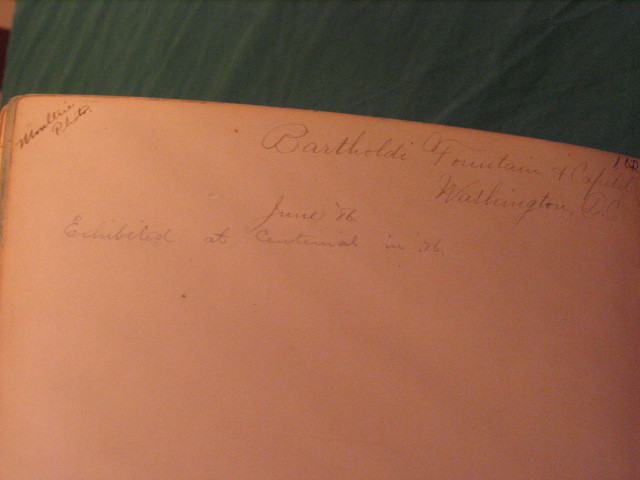 Moulttrie
Photo.
Bartholdi Fountain & Capitol
Washington, D.C.
June '86
Exhibited at Centennial in '76.